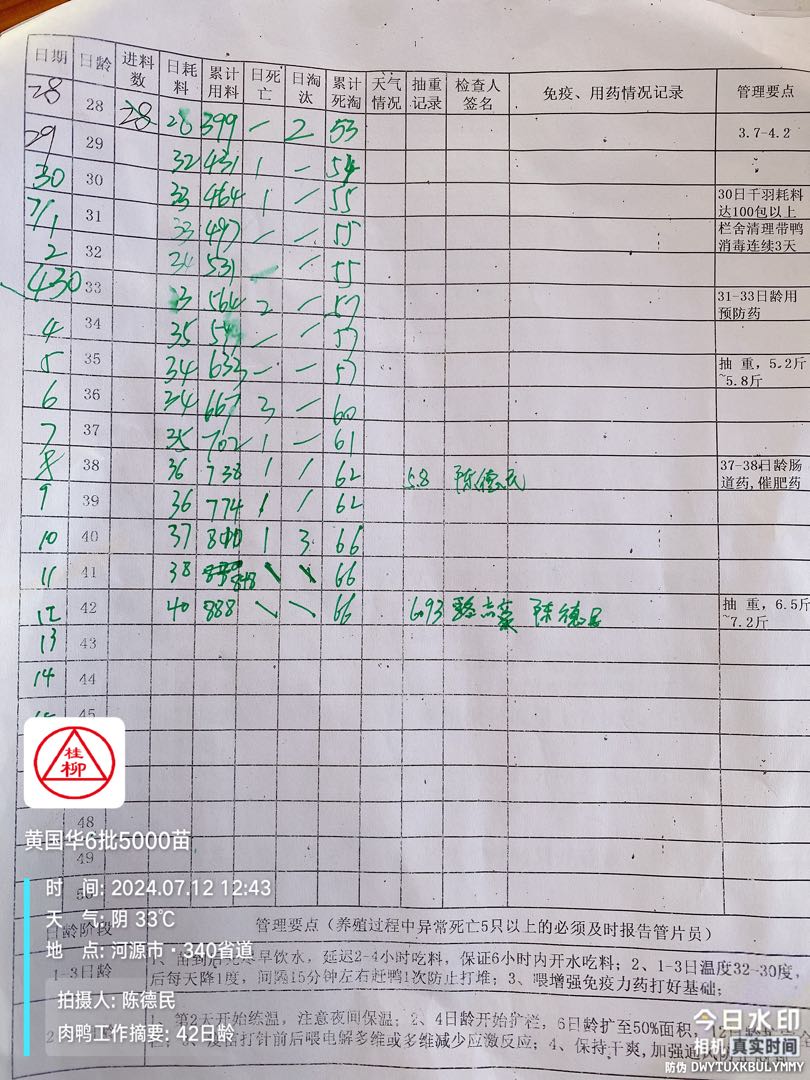 日期 日龄 进料数 日耗料 累计用料 日死亡 日淘汰 累计死淘 天气情况 抽重记录 检查人签名 免疫、用药情况记录 管理要点
28 28 28 28 399 一 2 53 3.7-4.2
29 29 32 431 1 一 54
30 30 33 464 1 一 55 30日千羽耗料达100包以上
7/1 31 33 497 一 一 55 栏舍清理带鸭消毒连续3天
2 32 34 531 一 一 55
33 564 2 一 57 31-33日龄用预防药
4 34 35 一 一 57
5 35 34 633 一 一 57 抽 重，5.2斤~5.8斤
6 36 34 667 3 一 60
7 37 35 702 1 一 61
8 38 36 738 1 / 62 5.8 陈德民 37-38日龄肠道药，催肥药
9 39 36 774 / 62
10 40 37 1 3 66
11 41 38 848 \ \ 66
12 42 40 888 \ \ 66 6.93 陈德民 抽 重，6.5斤~7.2斤
13 43
14 44
45
桂柳
48
黄国华6批5000苗
49
时 间: 2024.07.12 12:43
天 气: 阴 33℃
日龄阶段 管理要点（养殖过程中异常死亡5只以上的必须及时报告管片员）
地 点: 河源市·340省道
1-3日龄 早饮水，延迟2-4小时吃料，保证6小时内开水吃料；2、1-3日温度32-30度，
后每天降1度，间隔15分钟左右赶鸭1次防止打堆；3、喂增强免疫力药打好基础；
拍摄人: 陈德民
1、第2天开始练温，注意夜间保温；2、4日龄开始扩栏，6日龄扩至50%面积，12日龄
肉鸭工作摘要: 42日龄
打针前后喂电解多维或多维减少应激反应；4、保持干爽，加强通
今日水印
相机 真实时间
防伪 DWYTUXKBULYMMY